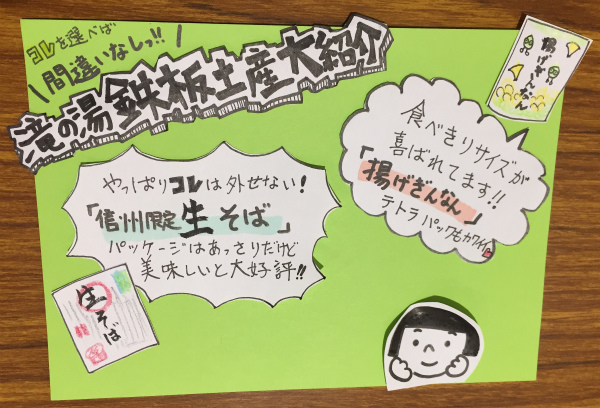 コレを選べば
\間違いなしっ!!/
滝の湯鉄板土産大紹介
やっぱりコレは外せない!
「信州限定生そば」
パッケージはあっさりだけど
美味しいと大好評!!
食べきりサイズが
喜ばれてます!!
「揚げぎんなん」
テトラパックもカワイイ
揚げぎんなん
生そば